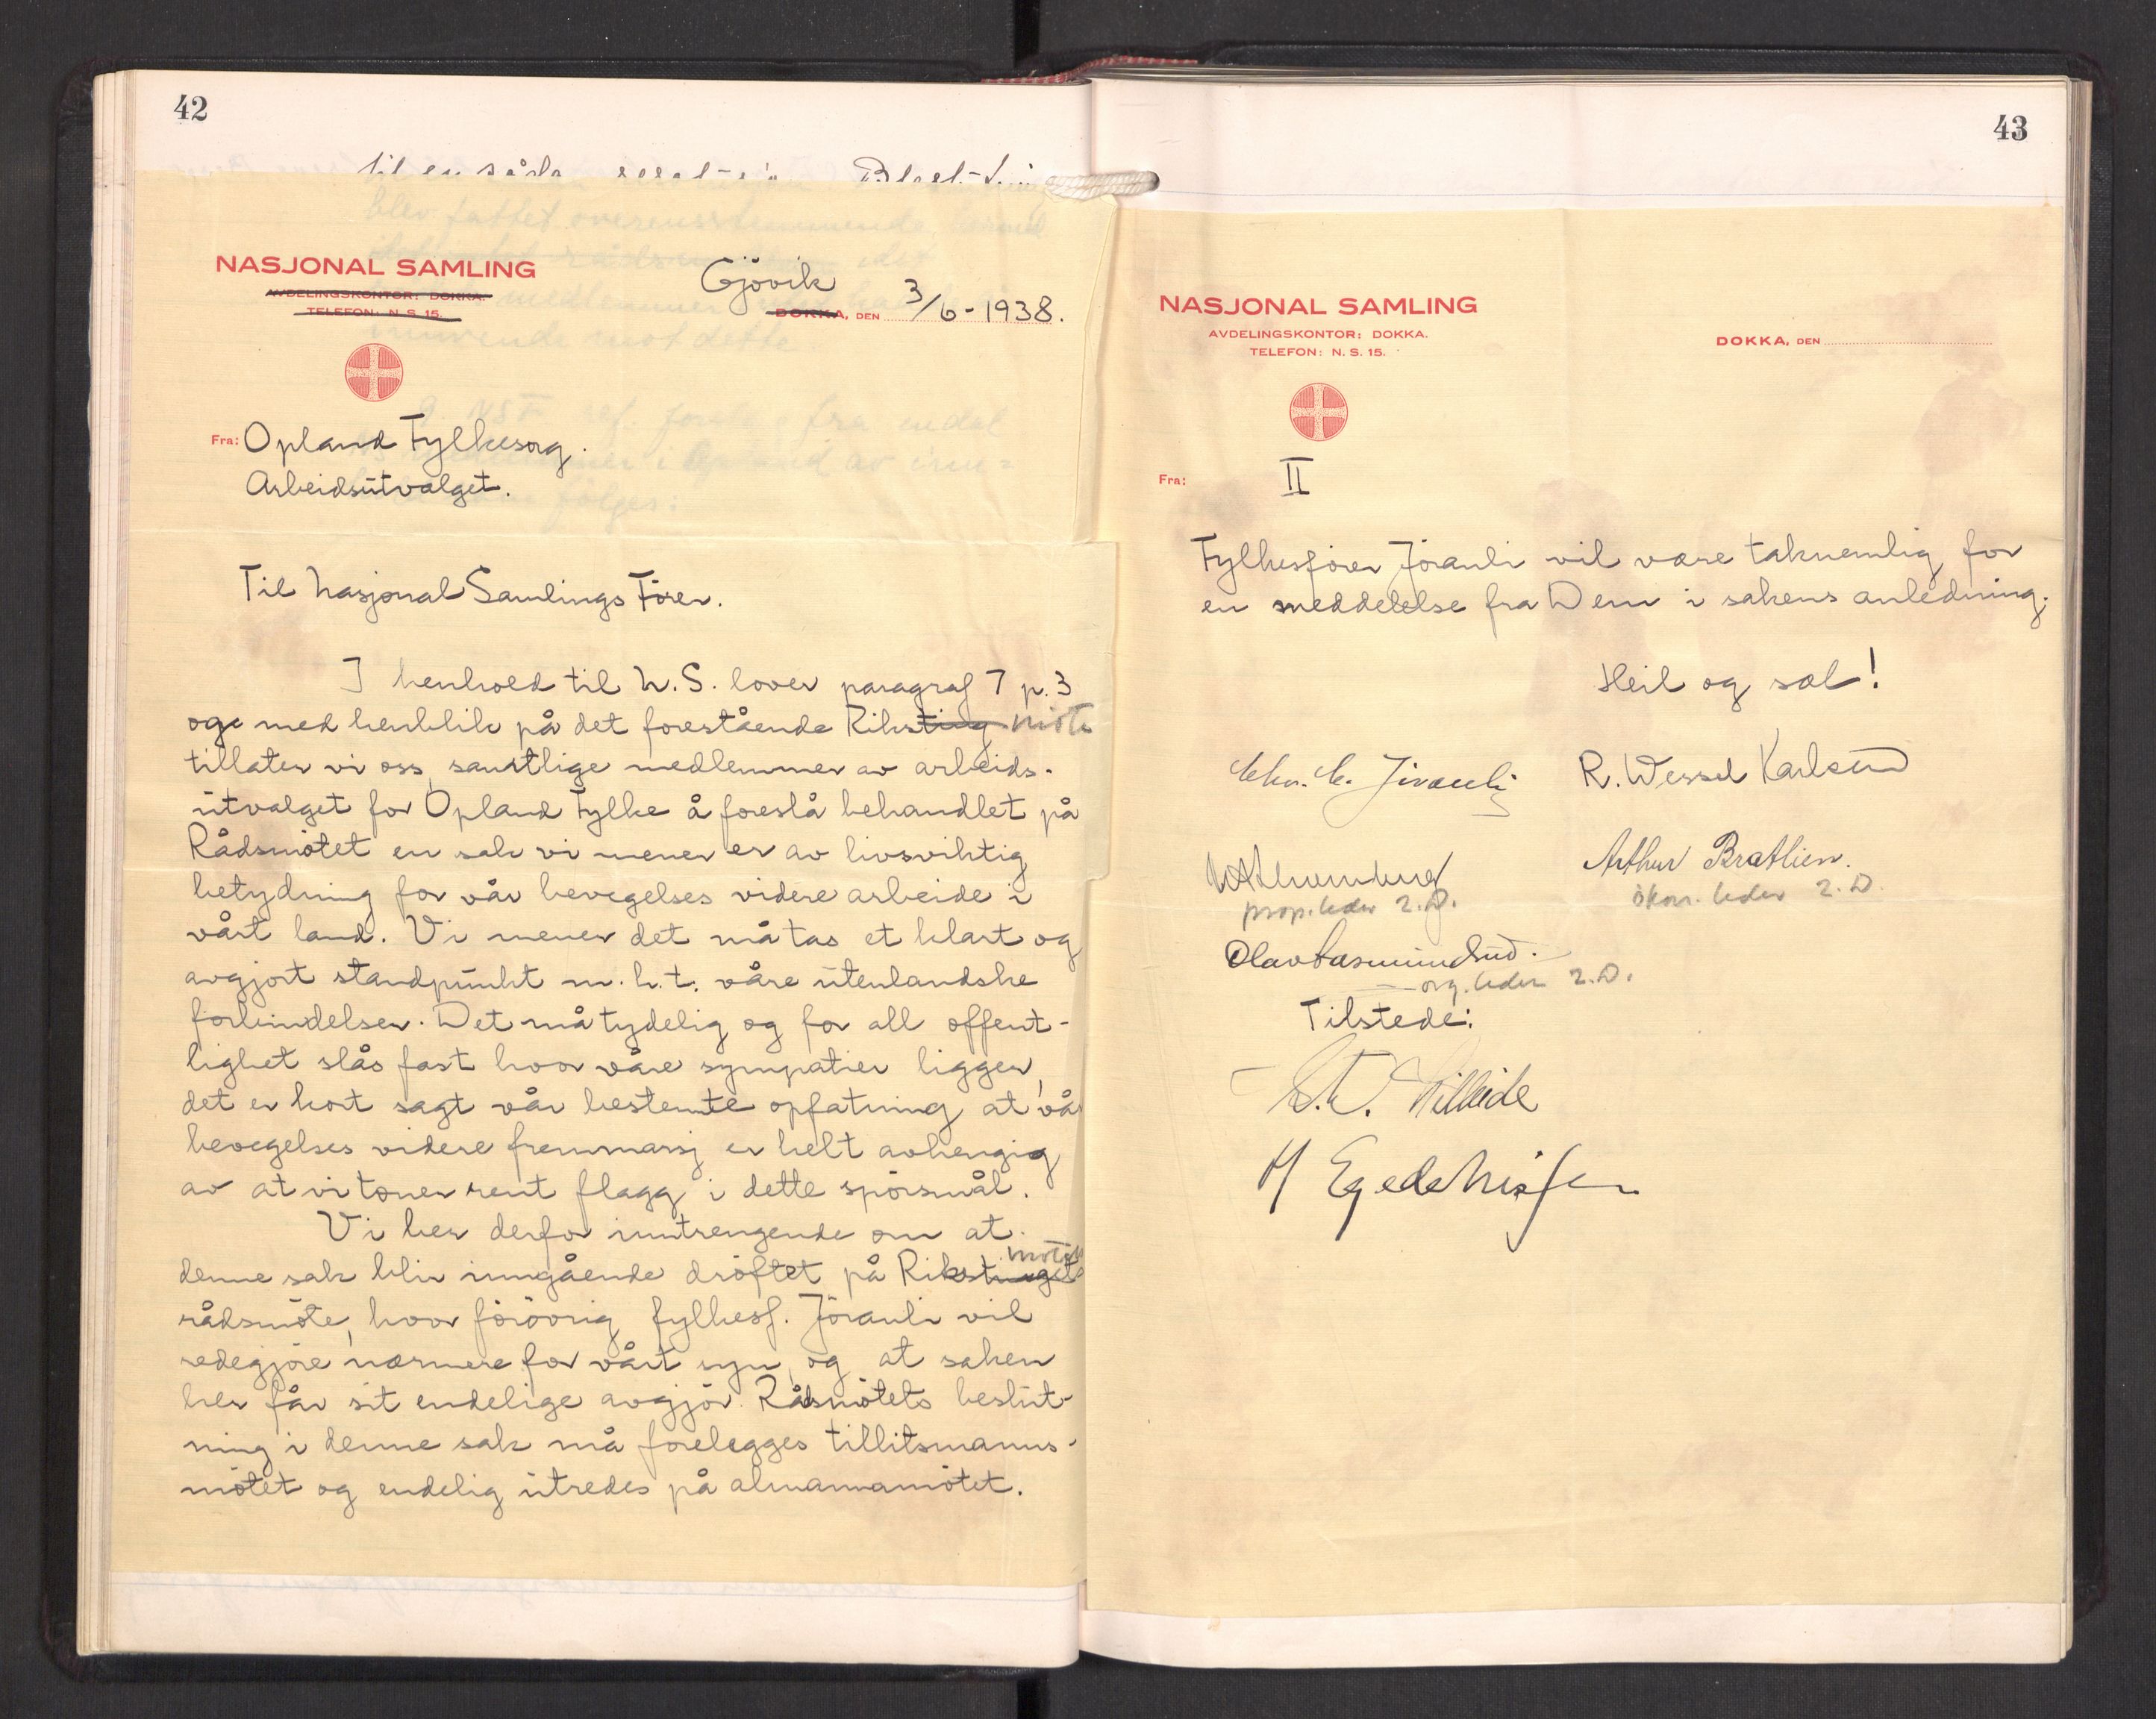 42
til en
NASJONAL SAMLING
AVDELINGSKONTOR: DOKKA.
TELEFON: N. S. 15.
Gjövik
DOKKA, DEN 3/6-1938.
Fra: Opland Fylkesorg.
Arbeidsutvalget.
Til Nasjonal Samlings Förer.
I henhold til N.S. lover paragraf 7 p. 3
og med henblik på det forestående Riksting möte
tillater vi oss, samtlige medlemmer av arbeids-
utvalget for Opland Fylke å foreslå behandlet på
Rådsmötet en sak vi mener er av livsviktig
betydning for vår bevegelses videre arbeide i
vårt land. Vi mener det må tas et klart og
avgjort standpunkt m.h.t. våre utenlandske
forbindelser. Det må tydelig og for all offent-
lighet slås fast hvor våre sympatier ligger,
det er kort sagt vår bestemte opfatning at vår
bevegelses videre fremmarsj er helt avhengig
av at vi toner rent flagg i dette spörsmål.
Vi ber derfor inntrengende om at
denne sak blir inngående dröftet på Rikstingets
rådsmöte, hvor forövrig fylkesf. Jöranli vil
redegjöre nærmere for vårt syn, og at saken
her får sit endelige avgjör. Rådsmötets beslut-
ning i denne sak må forelegges tillitsmanns-
mötet og endelig utredes på almannamötet.
43
NASJONAL SAMLING
AVDELINGSKONTOR: DOKKA.
TELEFON: N. S. 15.
DOKKA, DEN
Fra:
II
Fylkesförer Jöranli vil være taknemlig for
en meddelelse fra Dem i sakens anledning.
Heil og sæl!
R. Wessel Karlsen
Arthur Bratlien.
prop. leder 2.D.
ökon. leder 2.D.
Olav Aasmundsud.
org. leder 2.D.
Tilstede:
Hilleide
H Egede Nissen